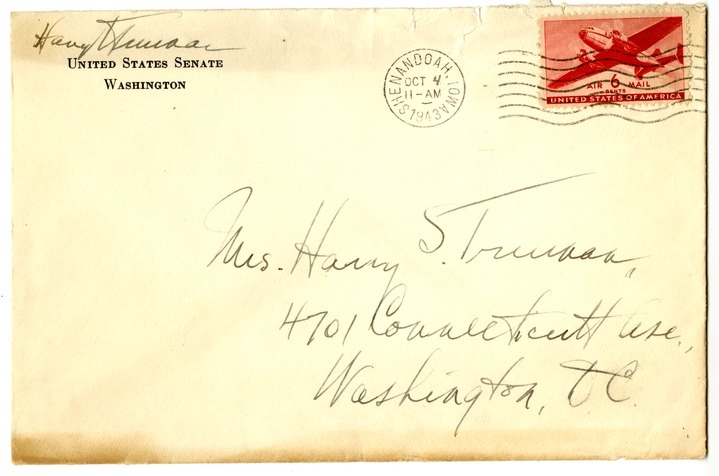 Harry S Truman
UNITED STATES SENATE
WASHINGTON
SHENANDOAH, IOWA
OCT 4
11-AM
1943
AIR 6 MAIL
CENTS
UNITED STATES OF AMERICA
Mrs. Harry S. Truman,
4701 Connecticutt Ave.,
Washington, DC.